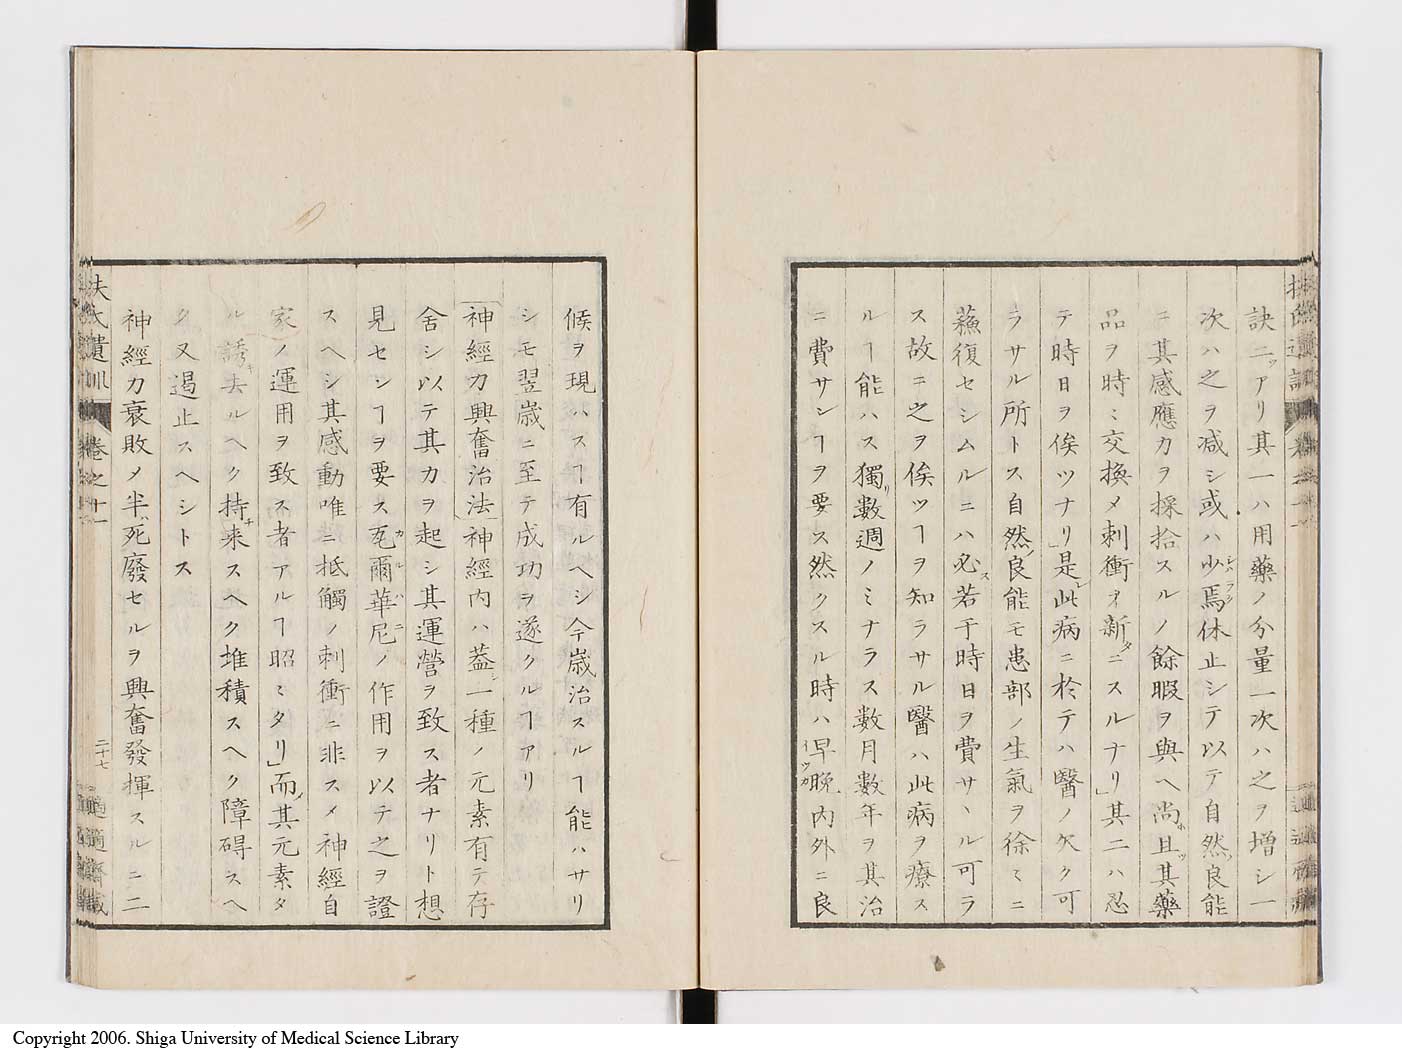 訣ニツアリ其一ハ用藥ノ分量一次ハ之ヲ増シ一
次ハ之ヲ減シ或ハ少焉休止シテ以テ自然ノ良能
ニ其感應力ヲ採拾スルノ餘暇ヲ與ヘ尚且ツ其藥
品ヲ時ミ交換メ刺衝ヲ新タニスルナリ」其二ハ忍
テ時日ヲ俟ツナリ」是レ此病ニ於テハ醫ノ欠ク可
ラサル所トス自然ノ良能モ患部ノ生氣ヲ徐ミニ
蘓復セシムルニハ必ス若干時日ヲ費サヽル可ラ
ス故ニ之ヲ俟ツヿヲ知ラサル醫ハ此病ヲ療ス
ルヿ能ハス獨リ數週ノミナラス数月数年ヲ其治
ニ費サンヿヲ要ス然クスル時ハ早晩内外ニ良
候ヲ現ハスヿ有ルヘシ今歳治スルヿ能ハサリ
シモ翌歳ニ至テ成功ヲ遂クルヿアリ
神經力興奮治法 神經内ハ蓋シ一種ノ元素有テ存
舍シ以テ其力ヲ起シ其運營ヲ致ス者ナリト想
見セシヿヲ要ス瓦爾華尼ノ作用ヲ以テ之ヲ證
スヘシ其感動唯ニ抵觸ノ刺衝ニ非スメ神經自
家ノ運用ヲ致ス者アルヿ昭ミタリ」而メ其元素タ
ル誘キ去ルヘク持チ来スヘク堆積スヘク障碍スヘ
ク又遏止スヘシトス
神經力衰敗メ半ハ死廢セルヲ興奮發揮スルニ二
扶氏遺訓
卷之十一
二十七
適適齋藏